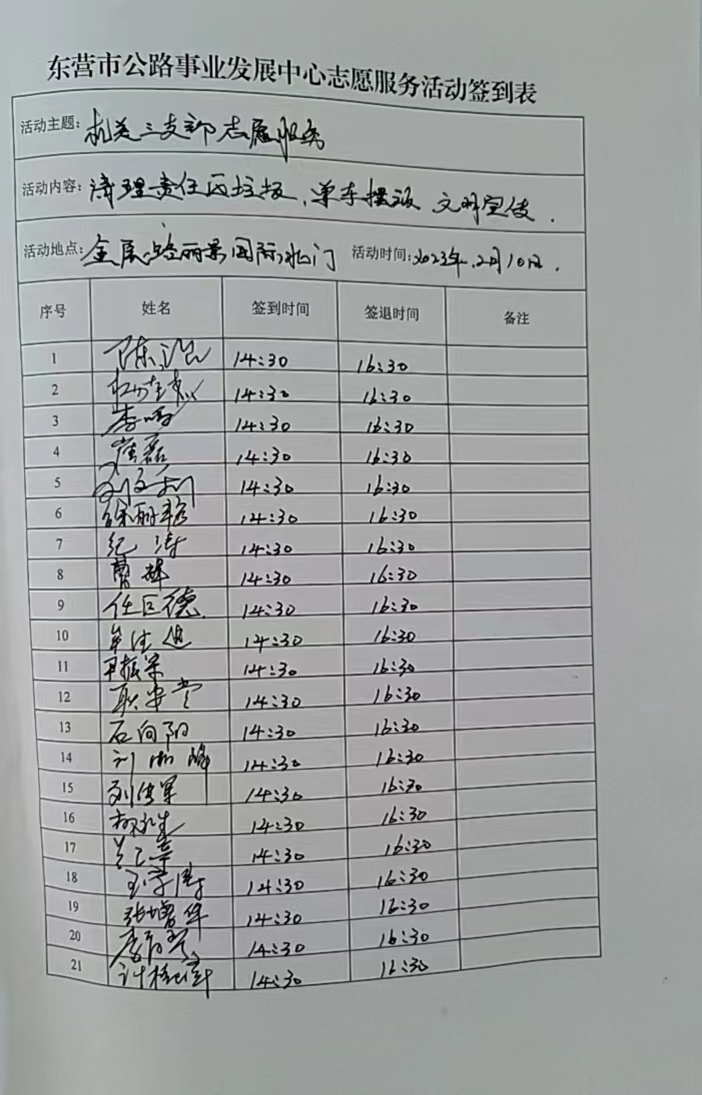 东营市公路事业发展中心志愿服务活动签到表
活动主题: 机关三支部志愿服务
活动内容: 清理责任区垃圾、单车摆放 文明宣传.
活动地点: 金辰路丽景国际北门 活动时间: 2023年.2月10日.
序号 姓名 签到时间 签退时间 备注
1 14:30 16:30
2 14:30 16:30
3 14:30 16:30
4 崔磊 14:30 16:30
5 14:30 16:30
6 14:30 16:30
7 纪涛 14:30 16:30
8 曹辉 14:30 16:30
9 任巨德 14:30 16:30
10 14:30 16:30
11 14:30 16:30
12 14:30 16:30
13 石向阳 14:30 16:30
14 14:30 16:30
15 14:30 16:30
16 14:30 16:30
17 14:30 16:30
18 14:30 16:30
19 张增华 14:30 16:30
20 14:30 16:30
21 14:30 16:30